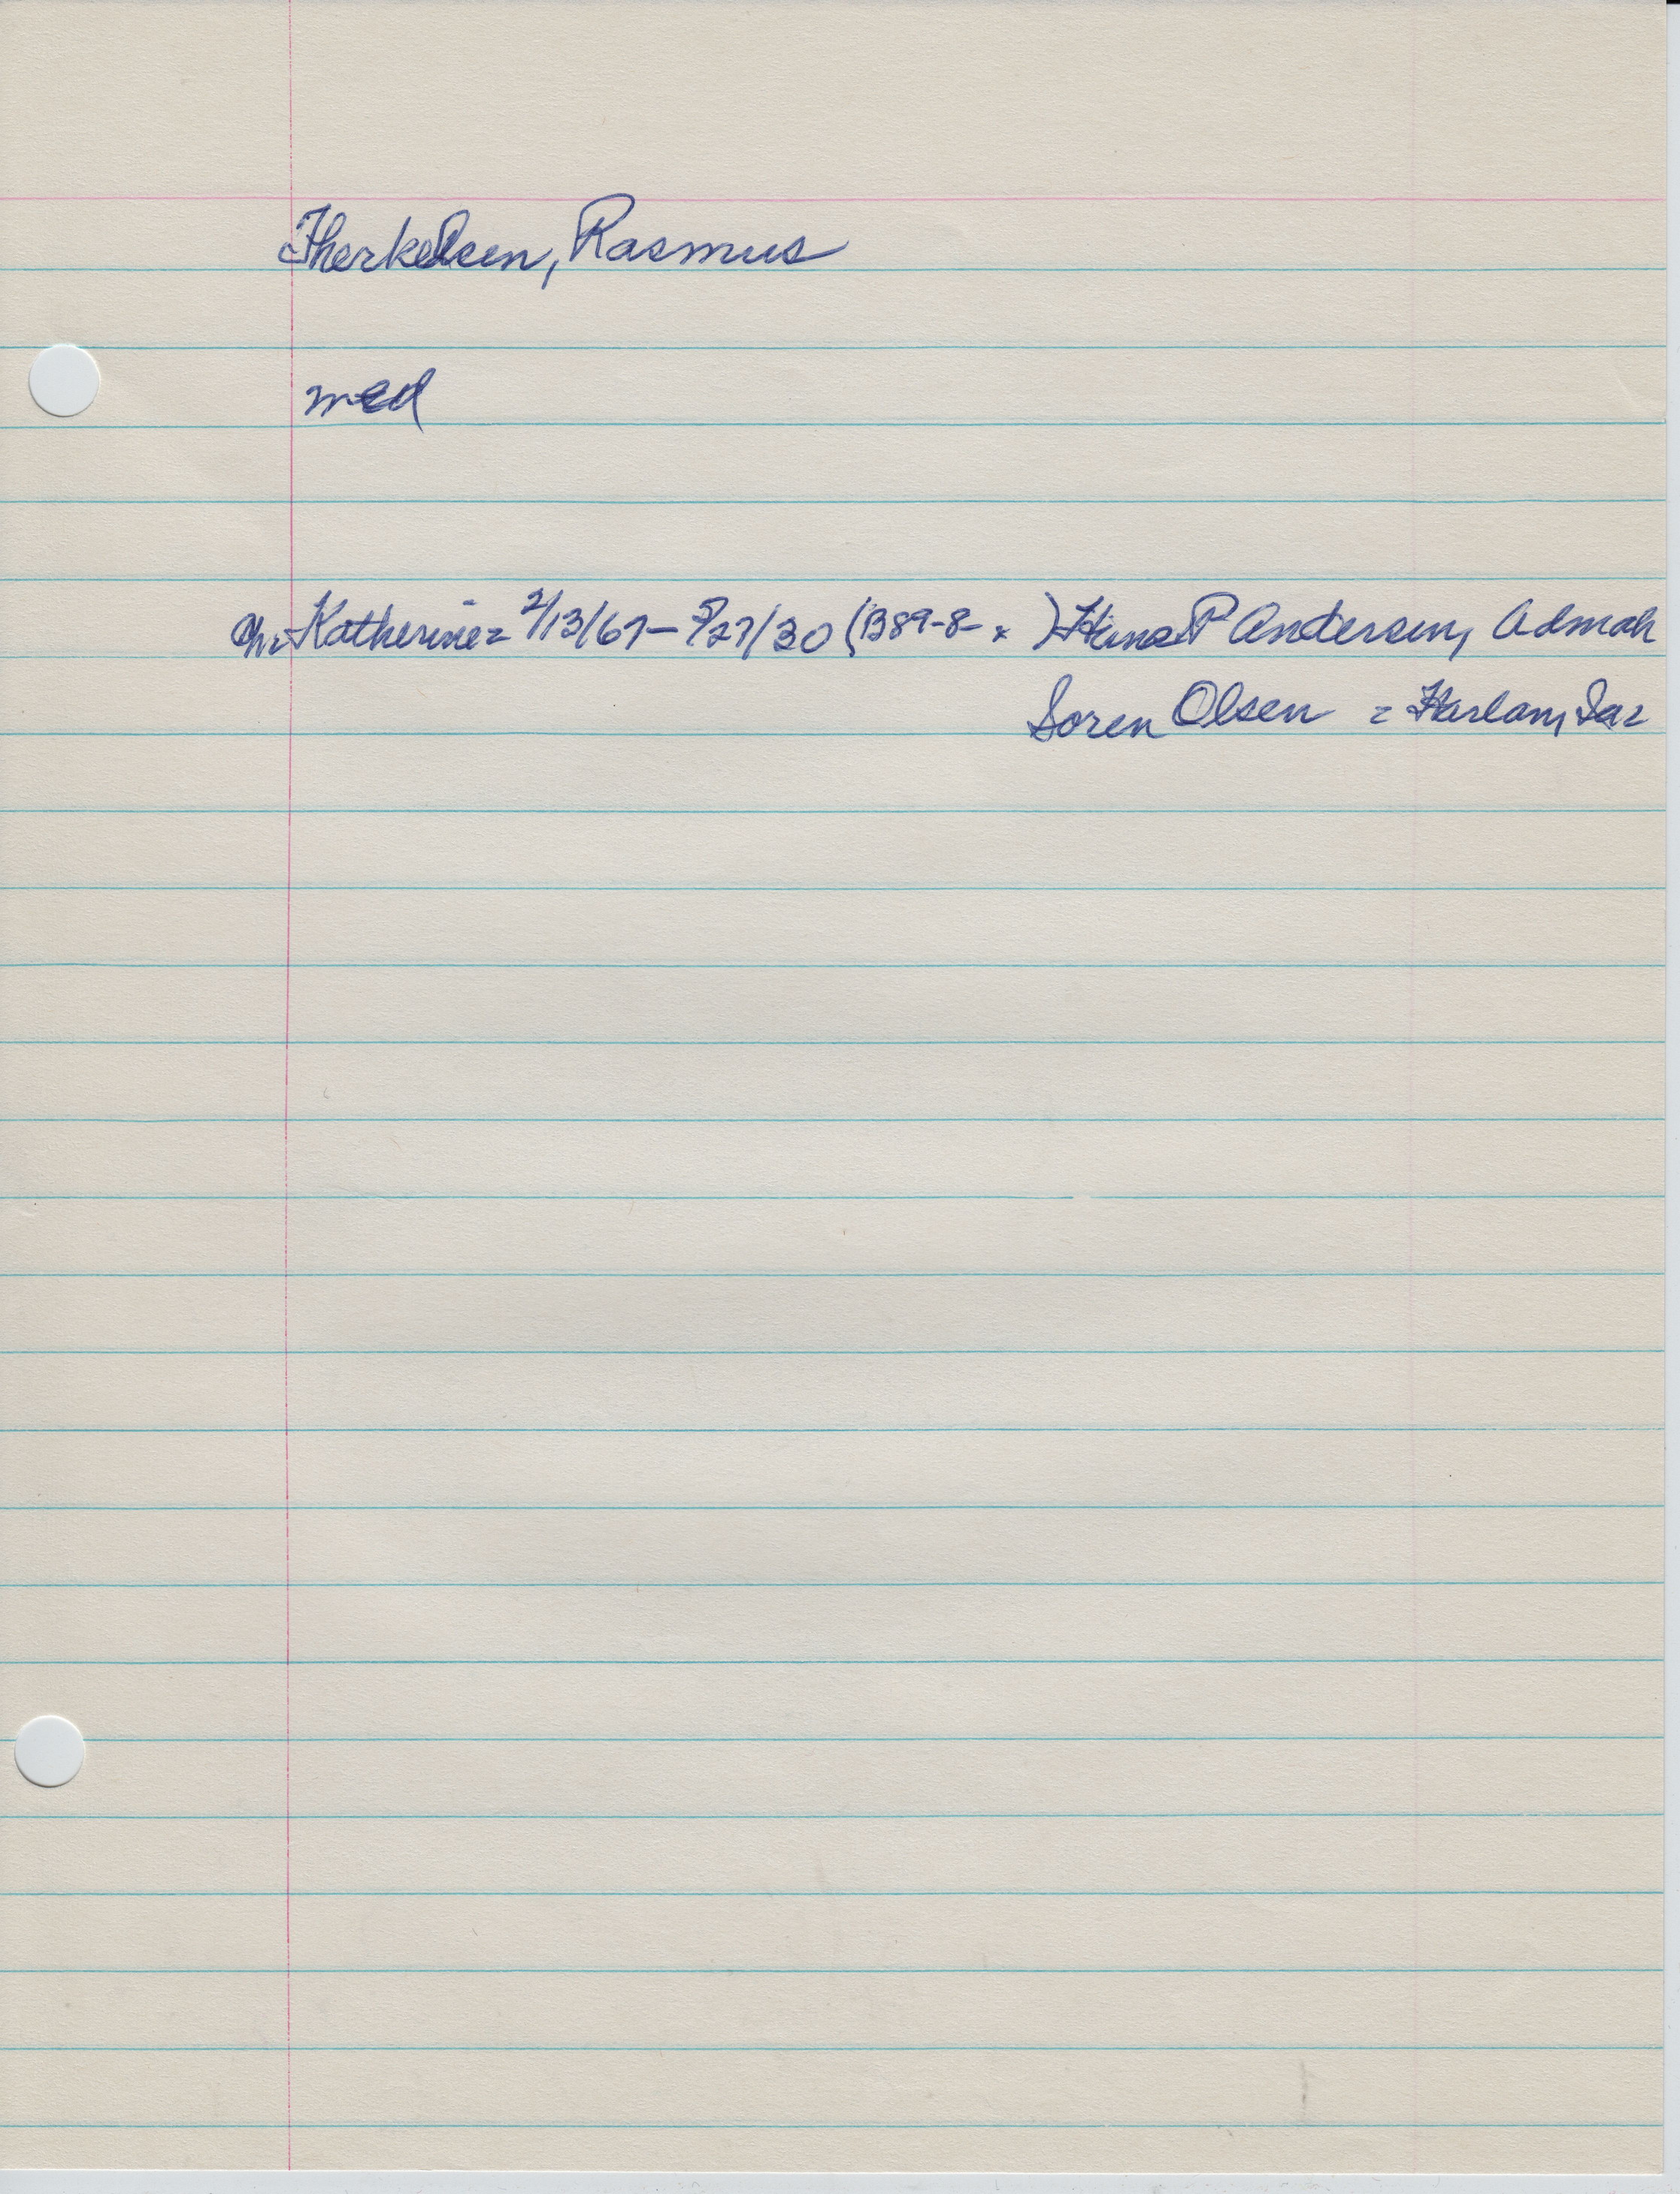 Therkelsen, Rasmus
med
Ch. Katherine = 2/13/67 - 5/27/30 (B89-8- x ) Hans P Andersen, Admah
Soren Olsen = Harlan, Ia